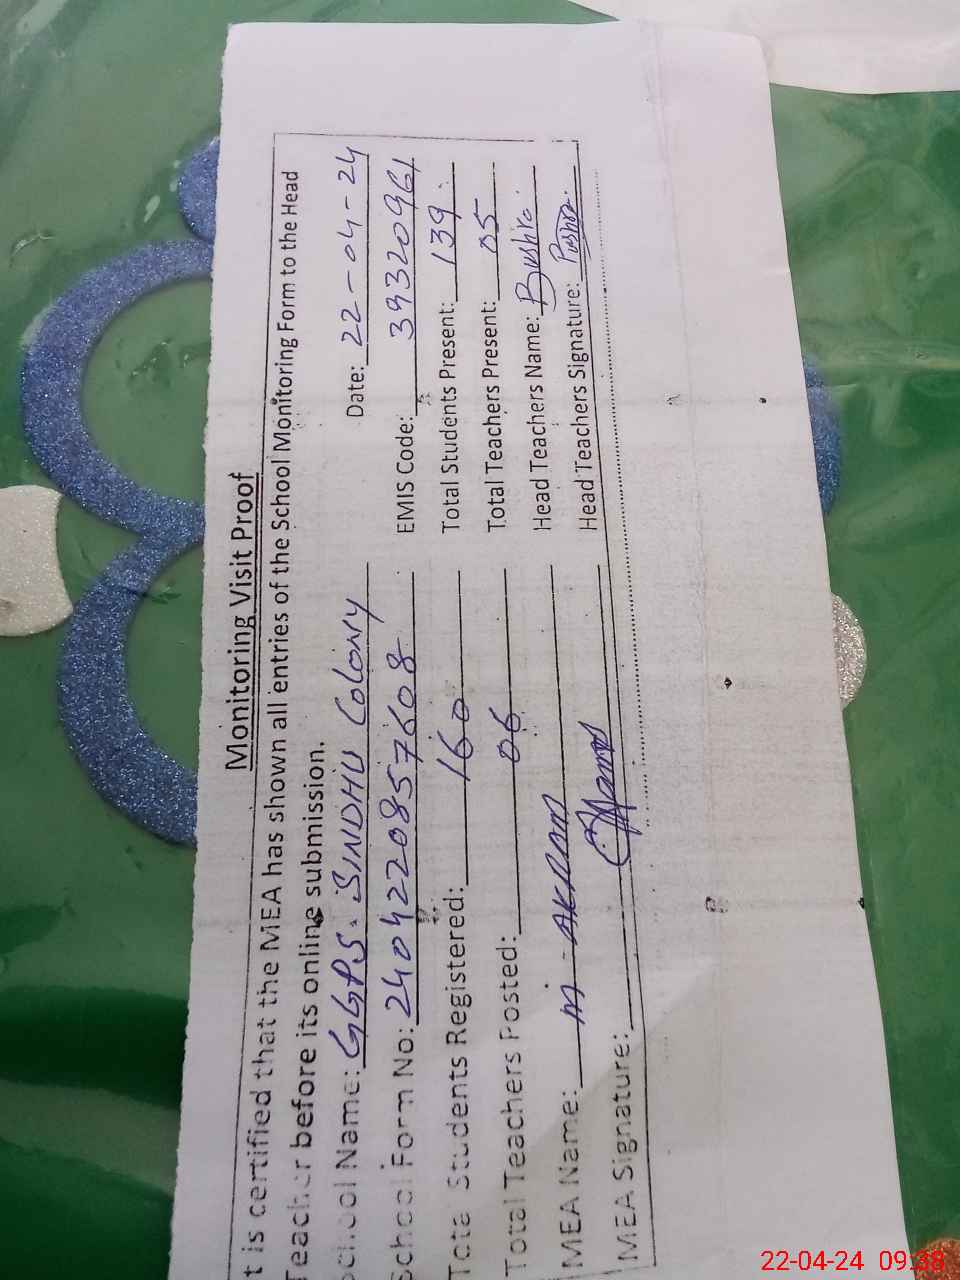 Monitoring Visit Proof
t is certified that the MEA has shown all entries of the School Monitoring Form to the Head
Teacher before its online submission.
School Name: GGPS. SINDHU Colony Date: 22-04-24
School Form No: 2404220857608 EMIS Code: 39320961
Total Students Registered: 160 Total Students Present: 139
Total Teachers Posted: 06 Total Teachers Present: 05
MEA Name: M-AKRAM Head Teachers Name: Bushra
MEA Signature: Head Teachers Signature:
22-04-24 09:38